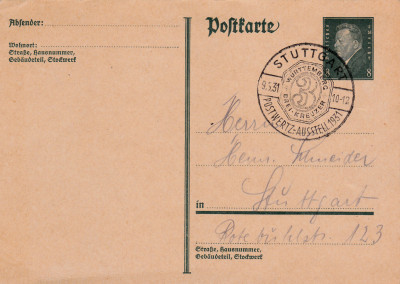 Absender:
Wohnort:
Straße, Hausnummer,
Gebäudeteil, Stockwerk
Postkarte
8
STUTTGART
9.5.31
WÜRTTEMBERG
3
DREI-KREUZER
POSTWERTZ-AUSSTELL 1931
Herrn
Heinr. Schneider
Stuttgart
in
123
Straße, Hausnummer,
Gebäudeteil, Stockwerk